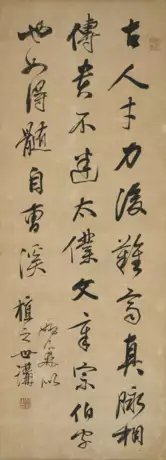 古人才力後難齊真脉相
傳貴不迷太僕文章宗伯字
也如得髓自曹溪
植之世講